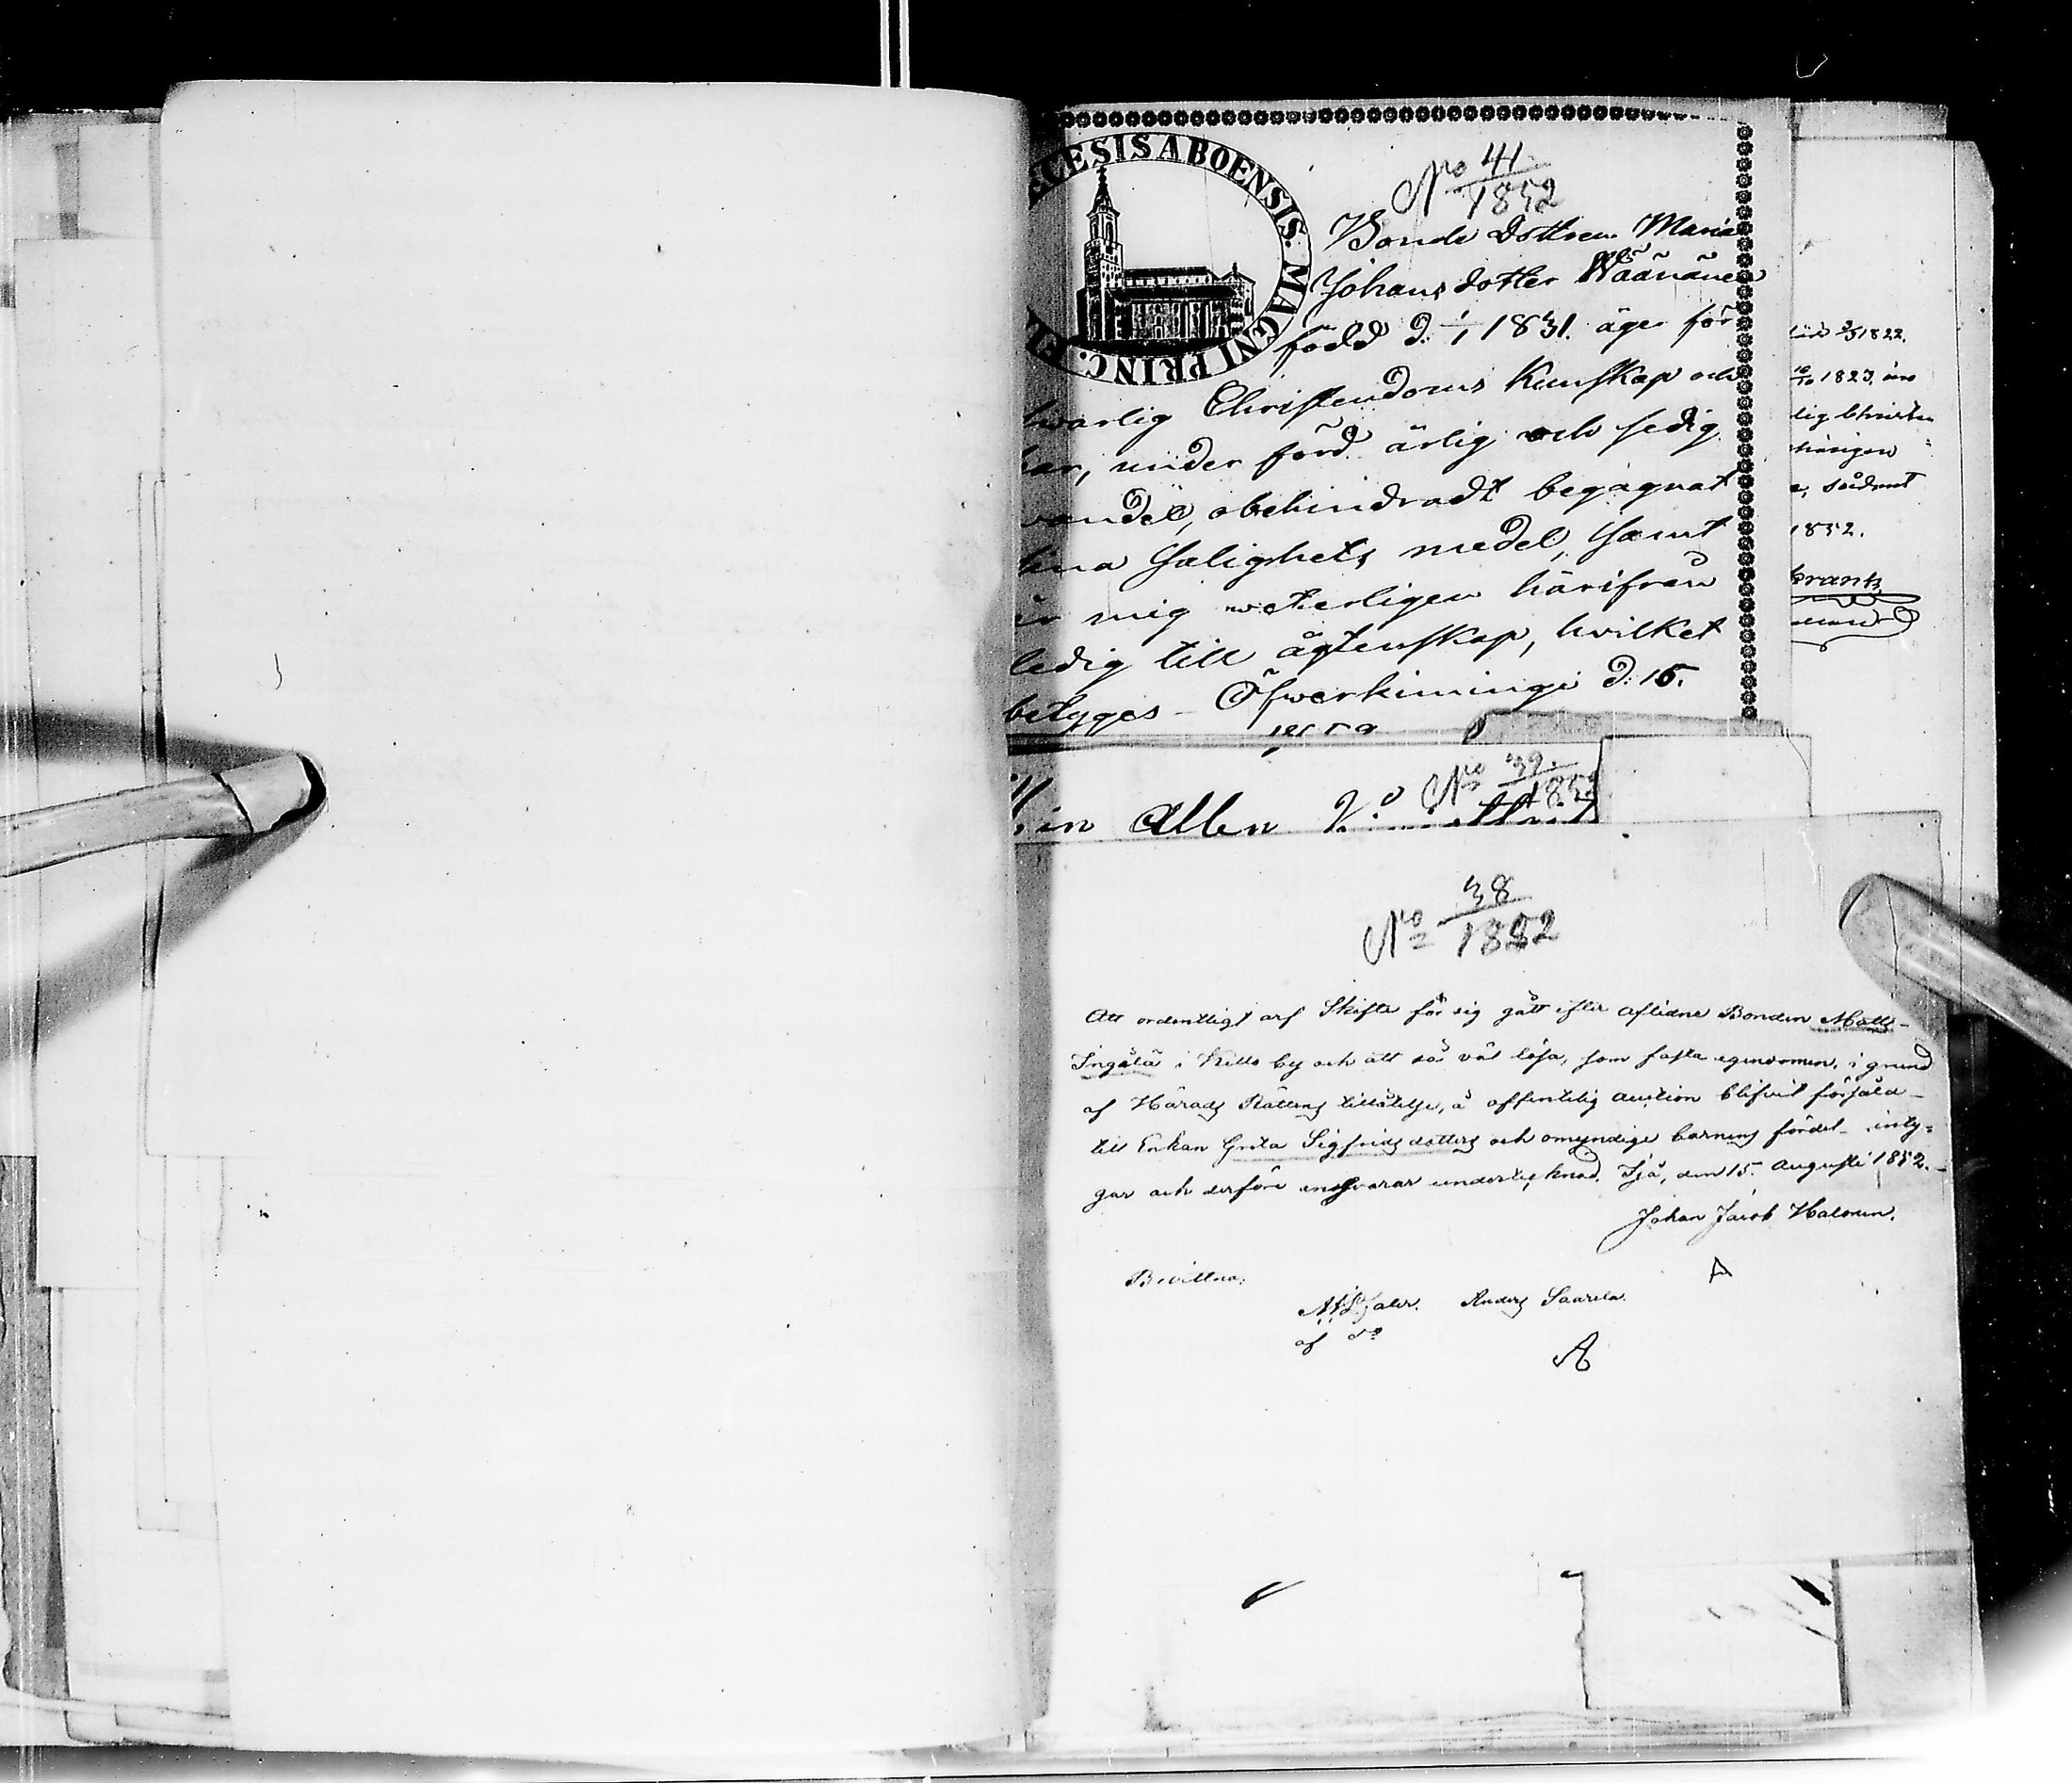 ECESIS ABOENSIS. MAGNI PRINC. FI
No 41
1852
Bonde dottren Maria
Johansdotter Wäänänen
född d. 1/1 1831. äger för
swarlig Christendoms Kunskap och
har, under förd ärlig och sedig
vandel, obehindradt begagnat
sina Salighets medel, samt
är mig veterligen härifrån
ledig till ägtenskap, hvilket
betyges - Öfwerkiminge d: 15.
1852
2/5 1822.
10/10 1823. äro
lig christen
hörigen
e, sådant
1852.
krantz
No 39.
1852
in Allen
No 38
1852
Att ordentligt arf Skifte för sig gått efter aflidne Bonden Matts
Ingälä i Kello by och att så väl lösa, som fasta egendomen, i grund
af Härads Rättens tillåtelse, å offentelig auction blifvit försåld
till Enkan Greta Sigfrids dotters och omyndige barnens fördel - inty-
gar och derföre ansvarar undertecknad. Ijå, den 15. Augusti 1852.
Johan Jacob Halonen.
A
Bevittna:
Anders Saarela.
af do
A